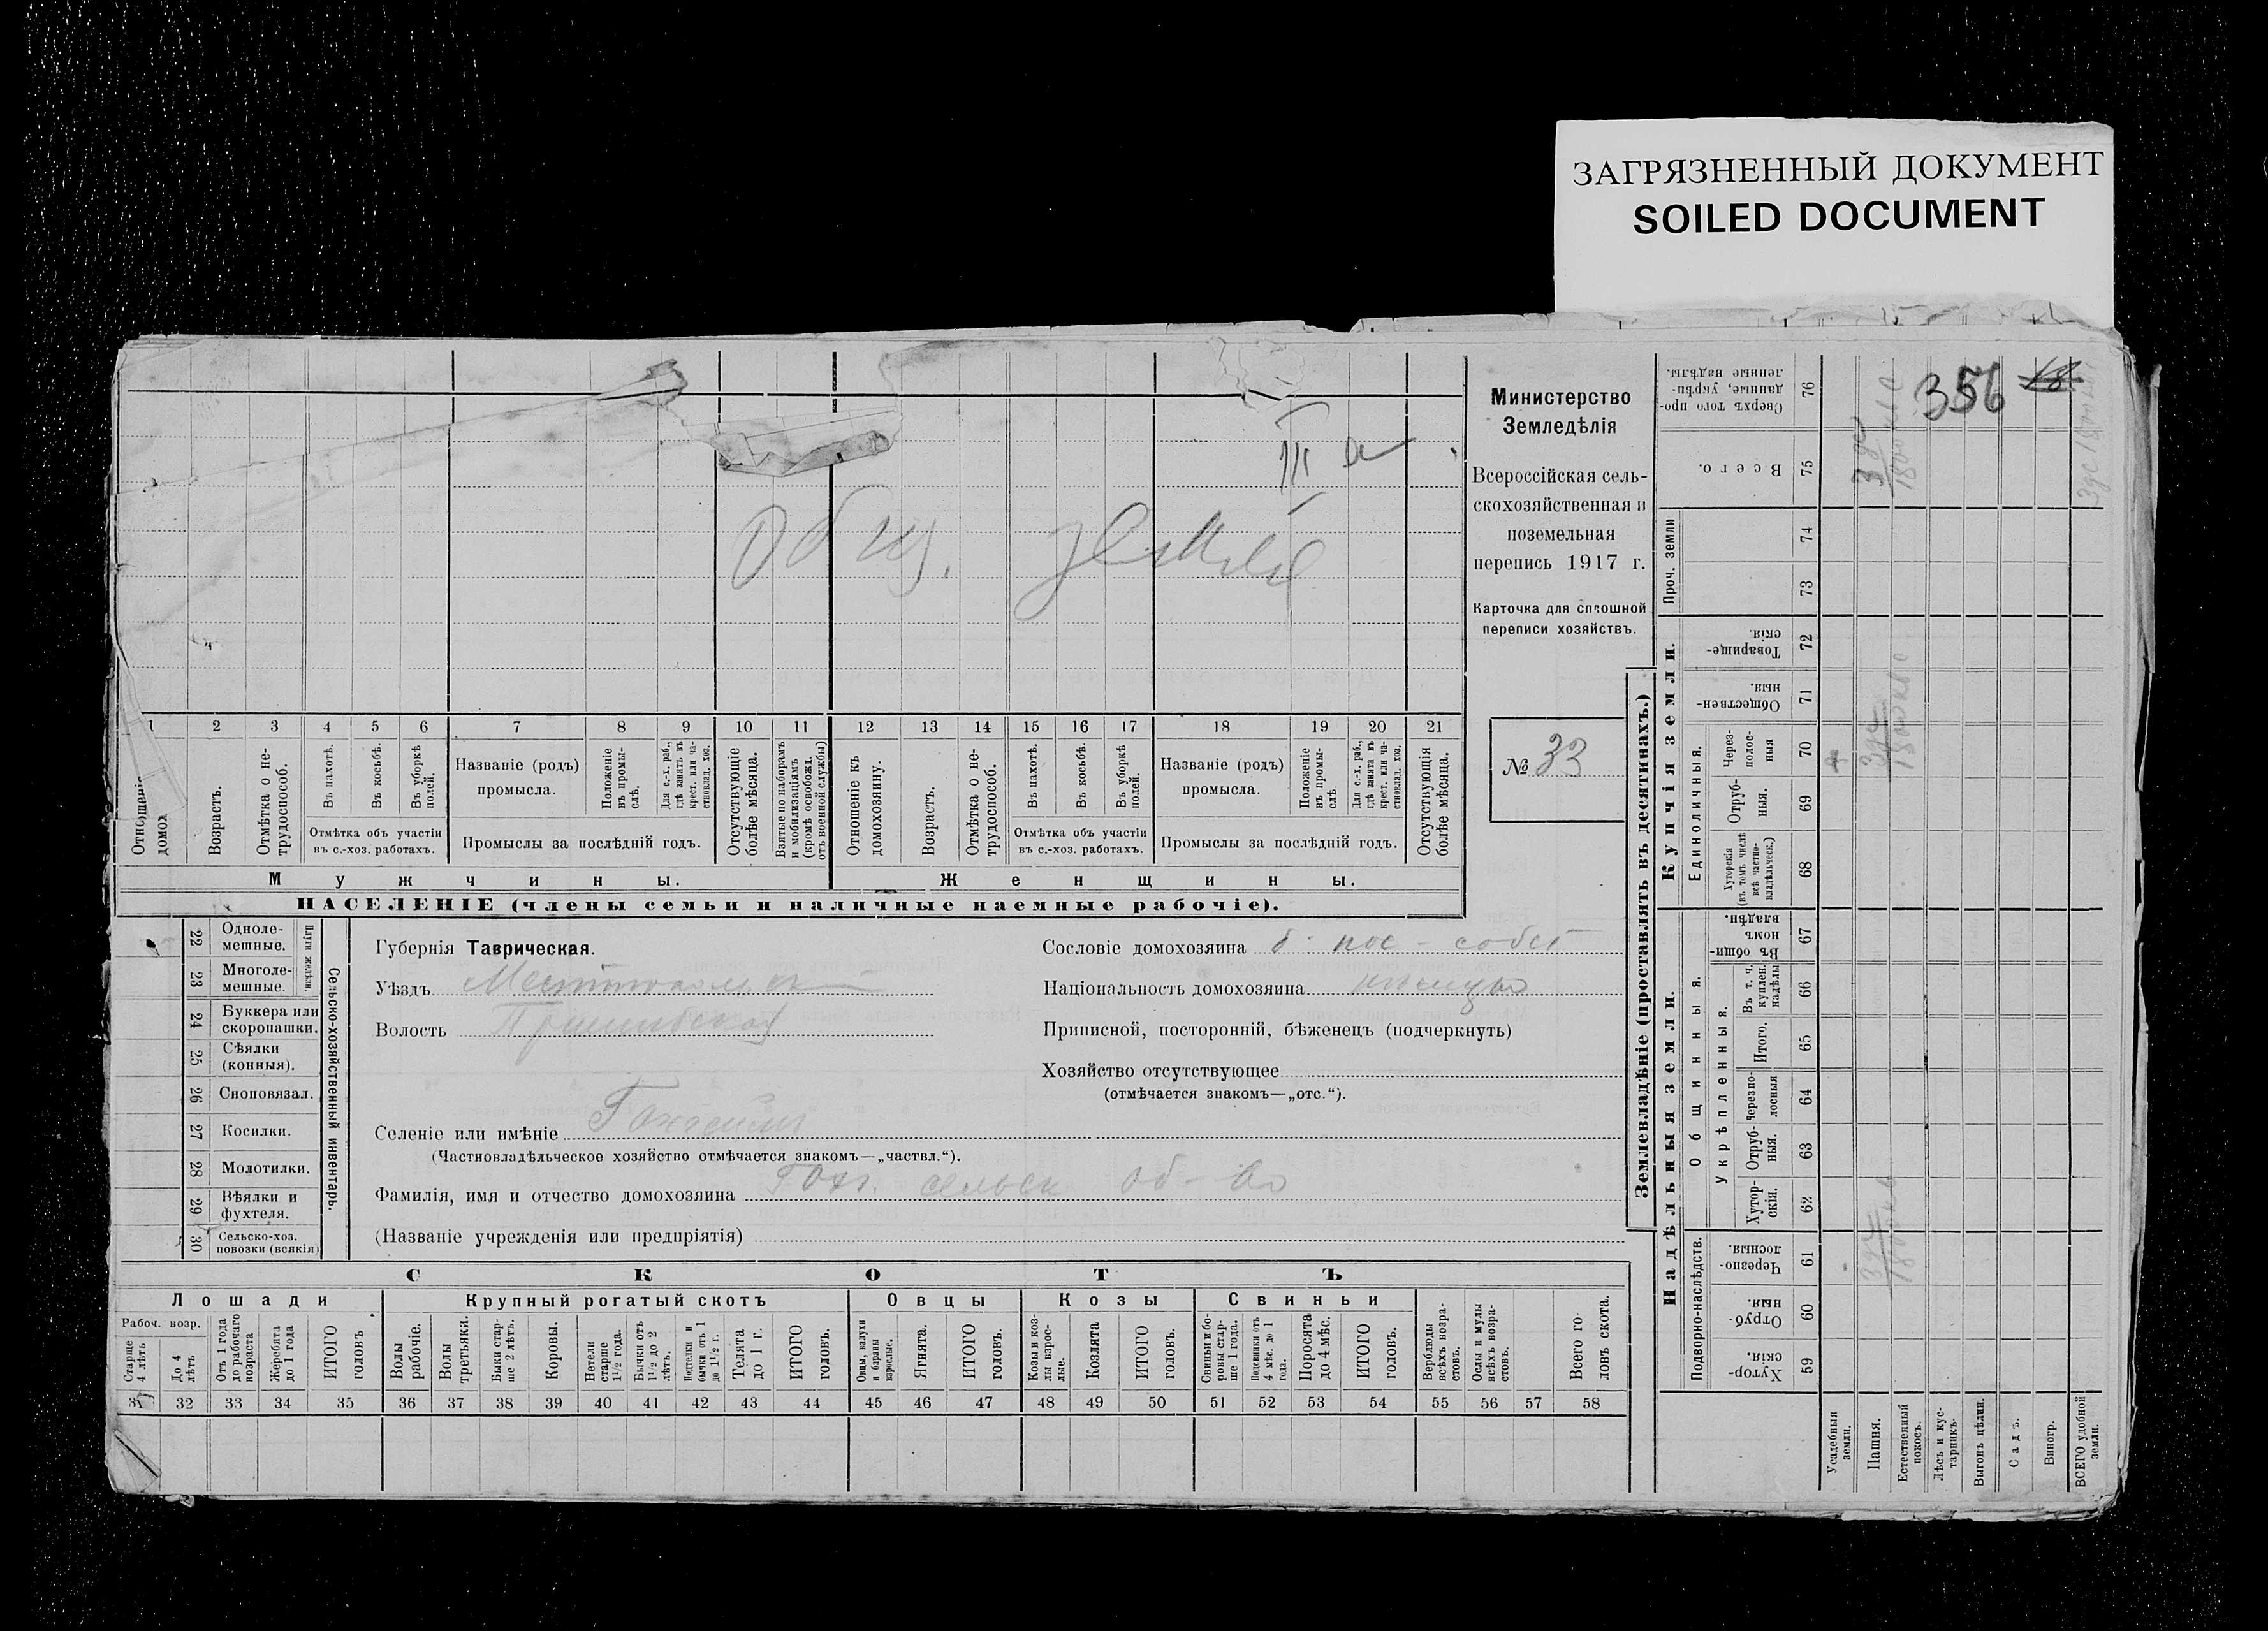 ЗАГРЯЗНЕННЫЙ ДОКУМЕНТ
SOILED DOCUMENT
III а
Общ. земля
Министерство
Земледѣлія
Всероссійская сель-
скохозяйственная и
поземельная
перепись 1917 г.
Карточка для сплошной
переписи хозяйствъ.
№ 33
1 2 3 4 5 6 7 8 9 10 11 12 13 14 15 16 17 18 19 20 21
Отношеніе
домох
Возрастъ.
Отмѣтка о не-
трудоспособ.
Въ пахотѣ.
Въ косьбѣ.
Въ уборкѣ
полей.
Отмѣтка объ участіи
въ с.-хоз. работахъ.
Названіе (родъ)
промысла.
Положеніе
въ промы-
слѣ.
Для с.-х. раб.,
гдѣ занятъ въ
крест. или ча-
стновлад. хоз.
Промыслы за послѣдній годъ.
Отсутствующіе
болѣе мѣсяца.
Взятые по наборамъ
и мобилизаціямъ
(кромѣ освобожд.
отъ военной службы)
Отношеніе къ
домохозяину.
Возрастъ.
Отмѣтка о не-
трудоспособ.
Въ пахотѣ.
Въ косьбѣ.
Въ уборкѣ
полей.
Отмѣтка объ участіи
въ с.-хоз. работахъ.
Названіе (родъ)
промысла.
Положеніе
въ промы-
слѣ.
Для с.-х. раб.,
гдѣ занята въ
крест. или ча-
стновлад. хоз.
Промыслы за послѣдній годъ.
Отсутствующія
болѣе мѣсяца.
Мужчины.
Женщины.
НАСЕЛЕНІЕ (члены семьи и наличные наемные рабочіе).
22 Однолe-
мешные.
23 Многоле-
мешные.
Плуги желѣзн.
24 Буккера или
скоропашки.
25 Сѣялки
(конныя).
26 Сноповязал.
27 Косилки.
28 Молотилки.
29 Вѣялки и
фухтеля.
30 Сельско-хоз.
повозки (всякія)
Сельско-хозяйственный инвентарь.
Губернія Таврическая.
Уѣздъ Мелитопольский
Волость Пришибская
Селеніе или имѣніе
(Частновладѣльческое хозяйство отмѣчается знакомъ—„частвл.“).
Фамилія, имя и отчество домохозяина сельск об-во
(Названіе учрежденія или предпріятія)
Сословіе домохозяина б. пос - собст
Національность домохозяина немцы
Приписной, посторонній, бѣженецъ (подчеркнуть)
Хозяйство отсутствующее
(отмѣчается знакомъ—„отс.“).
СКОТЪ
Лошади
Рабоч. возр.
Старше
4 лѣтъ
До 4
лѣтъ
Отъ 1 года
до рабочаго
возраста
Жеребята
до 1 года
ИТОГО
головъ
Крупный рогатый скотъ
Волы
рабочіе.
Волы
третьяки.
Быки стар-
ше 2 лѣтъ.
Коровы.
Нетели
старше
1½ года.
Бычки отъ
1½ до 2
лѣтъ.
Нетелки и
бычки отъ 1
до 1½ г.
Телята
до 1 г.
ИТОГО
головъ.
Овцы
Овцы, валухи
и бараны
взрослые.
Ягнята.
ИТОГО
головъ.
Козы
Козы и коз-
лы взрос-
лые.
Козлята
ИТОГО
головъ.
Свиньи
Свиньи и бо-
ровы стар-
ше 1 года.
Подсвинки отъ
4 мѣс. до 1
года.
Поросята
до 4 мѣс.
ИТОГО
головъ.
Верблюды
всѣхъ возра-
стовъ.
Ослы и мулы
всѣхъ возра-
стовъ.
Всего го-
ловъ скота.
32 33 34 35 36 37 38 39 40 41 42 43 44 45 46 47 48 49 50 51 52 53 54 55 56 57 58
Землевладѣніе (проставлять въ десятинахъ.)
Надѣльныя земли.
Купчія земли.
Проч. земли
Подворно-наслѣдств.
Общинныя.
Укрѣпленныя.
Единоличныя.
Хутор-
скія. 59
Отруб-
ныя. 60
Черезпо-
лосныя. 61
Хутор-
скія. 62
Отруб-
ныя. 63
Черезпо-
лосныя 64
Итого. 65
Въ т. ч.
куплен.
надѣлы 66
Въ общин-
номъ
владѣн. 67
Хуторскія
(въ томъ числѣ
всѣ частно-
владѣльческ.) 68
Отруб-
ныя. 69
Через-
полос-
ныя 70
Обществен-
ныя. 71
Товарище-
скія. 72
73
74
Всего. 75
Сверхъ того про-
данные, укрѣп-
ленные надѣлы. 76
356
Усадебныя
земли.
Пашня.
Естественный
покосъ.
Лѣсъ и кус-
тарникъ.
Выгонъ цѣлин.
Садъ.
Виногр.
ВСЕГО удобной
земли.